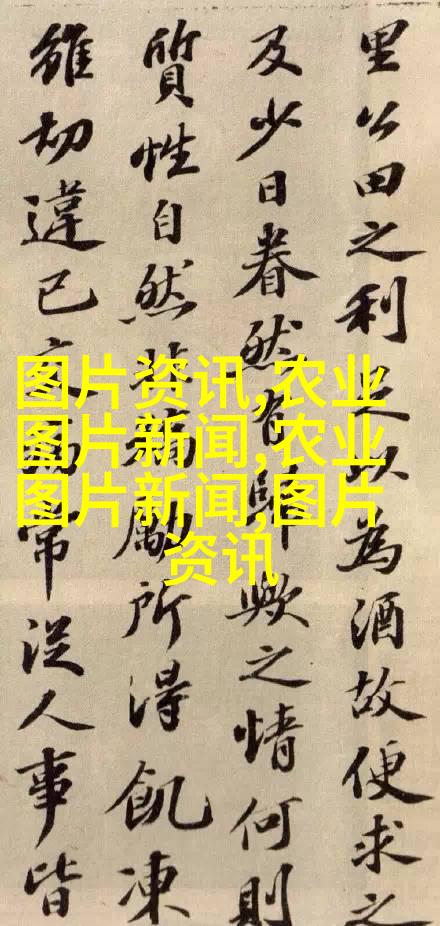 里公田之利足以為酒故便求之
及少日眷然有歸歟之情何則
質性自然非矯勵所得飢凍
雖切違已交病常從人事皆
图片资讯,农业
图片新闻,农业
图片新闻,图片
资讯